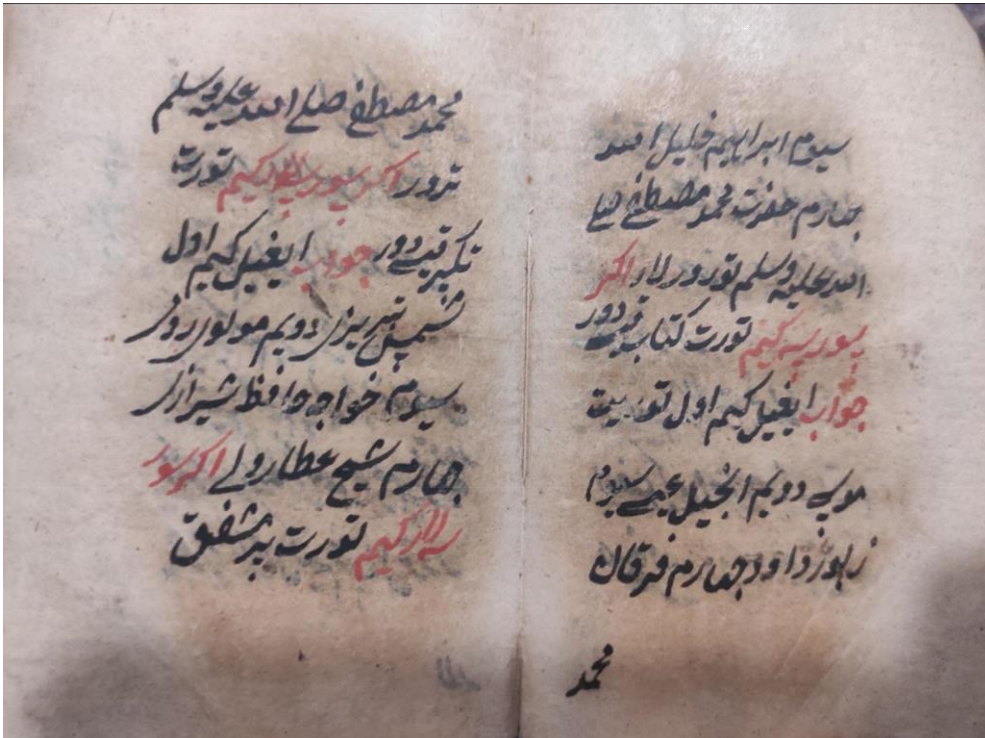 سیوم ابراهیم خلیل الله
چهارم حضرت محمد مصطفی صلی
الله علیه وسلم تورورلار اکر
پورسه کیم تورت کتاب قیدور
جواب ایغیل کیم اول توریت
موسی دویم انجیل عیسی سیوم
زابور داود چهارم فرقان
محمد
محمد مصطفی صلی الله علیه وسلم
ترور اکر سورسه لار کیم تورت
تکبیر قیدور جواب ایغیل کیم اول
شمس تبریزی دویم مولوی رومی
سیوم خواجه حافظ شیرازی
چهارم شیخ عطار ولی اکر سور
سه لار کیم تورت پیر مشفق